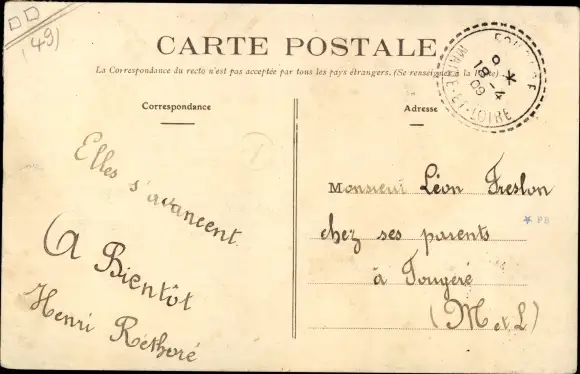 (49)
CARTE POSTALE
La Correspondance du recto n'est pas acceptée par tous les pays étrangers. (Se renseigner à la Poste).
Correspondance
Adresse
MAINE-ET-LOIRE
9
18-4
09
Elles s'avancent
A Bientôt
Henri Réthoré
Monsieur Léon Freslon
chez ses parents
à Fougeré
(M et L)
PB